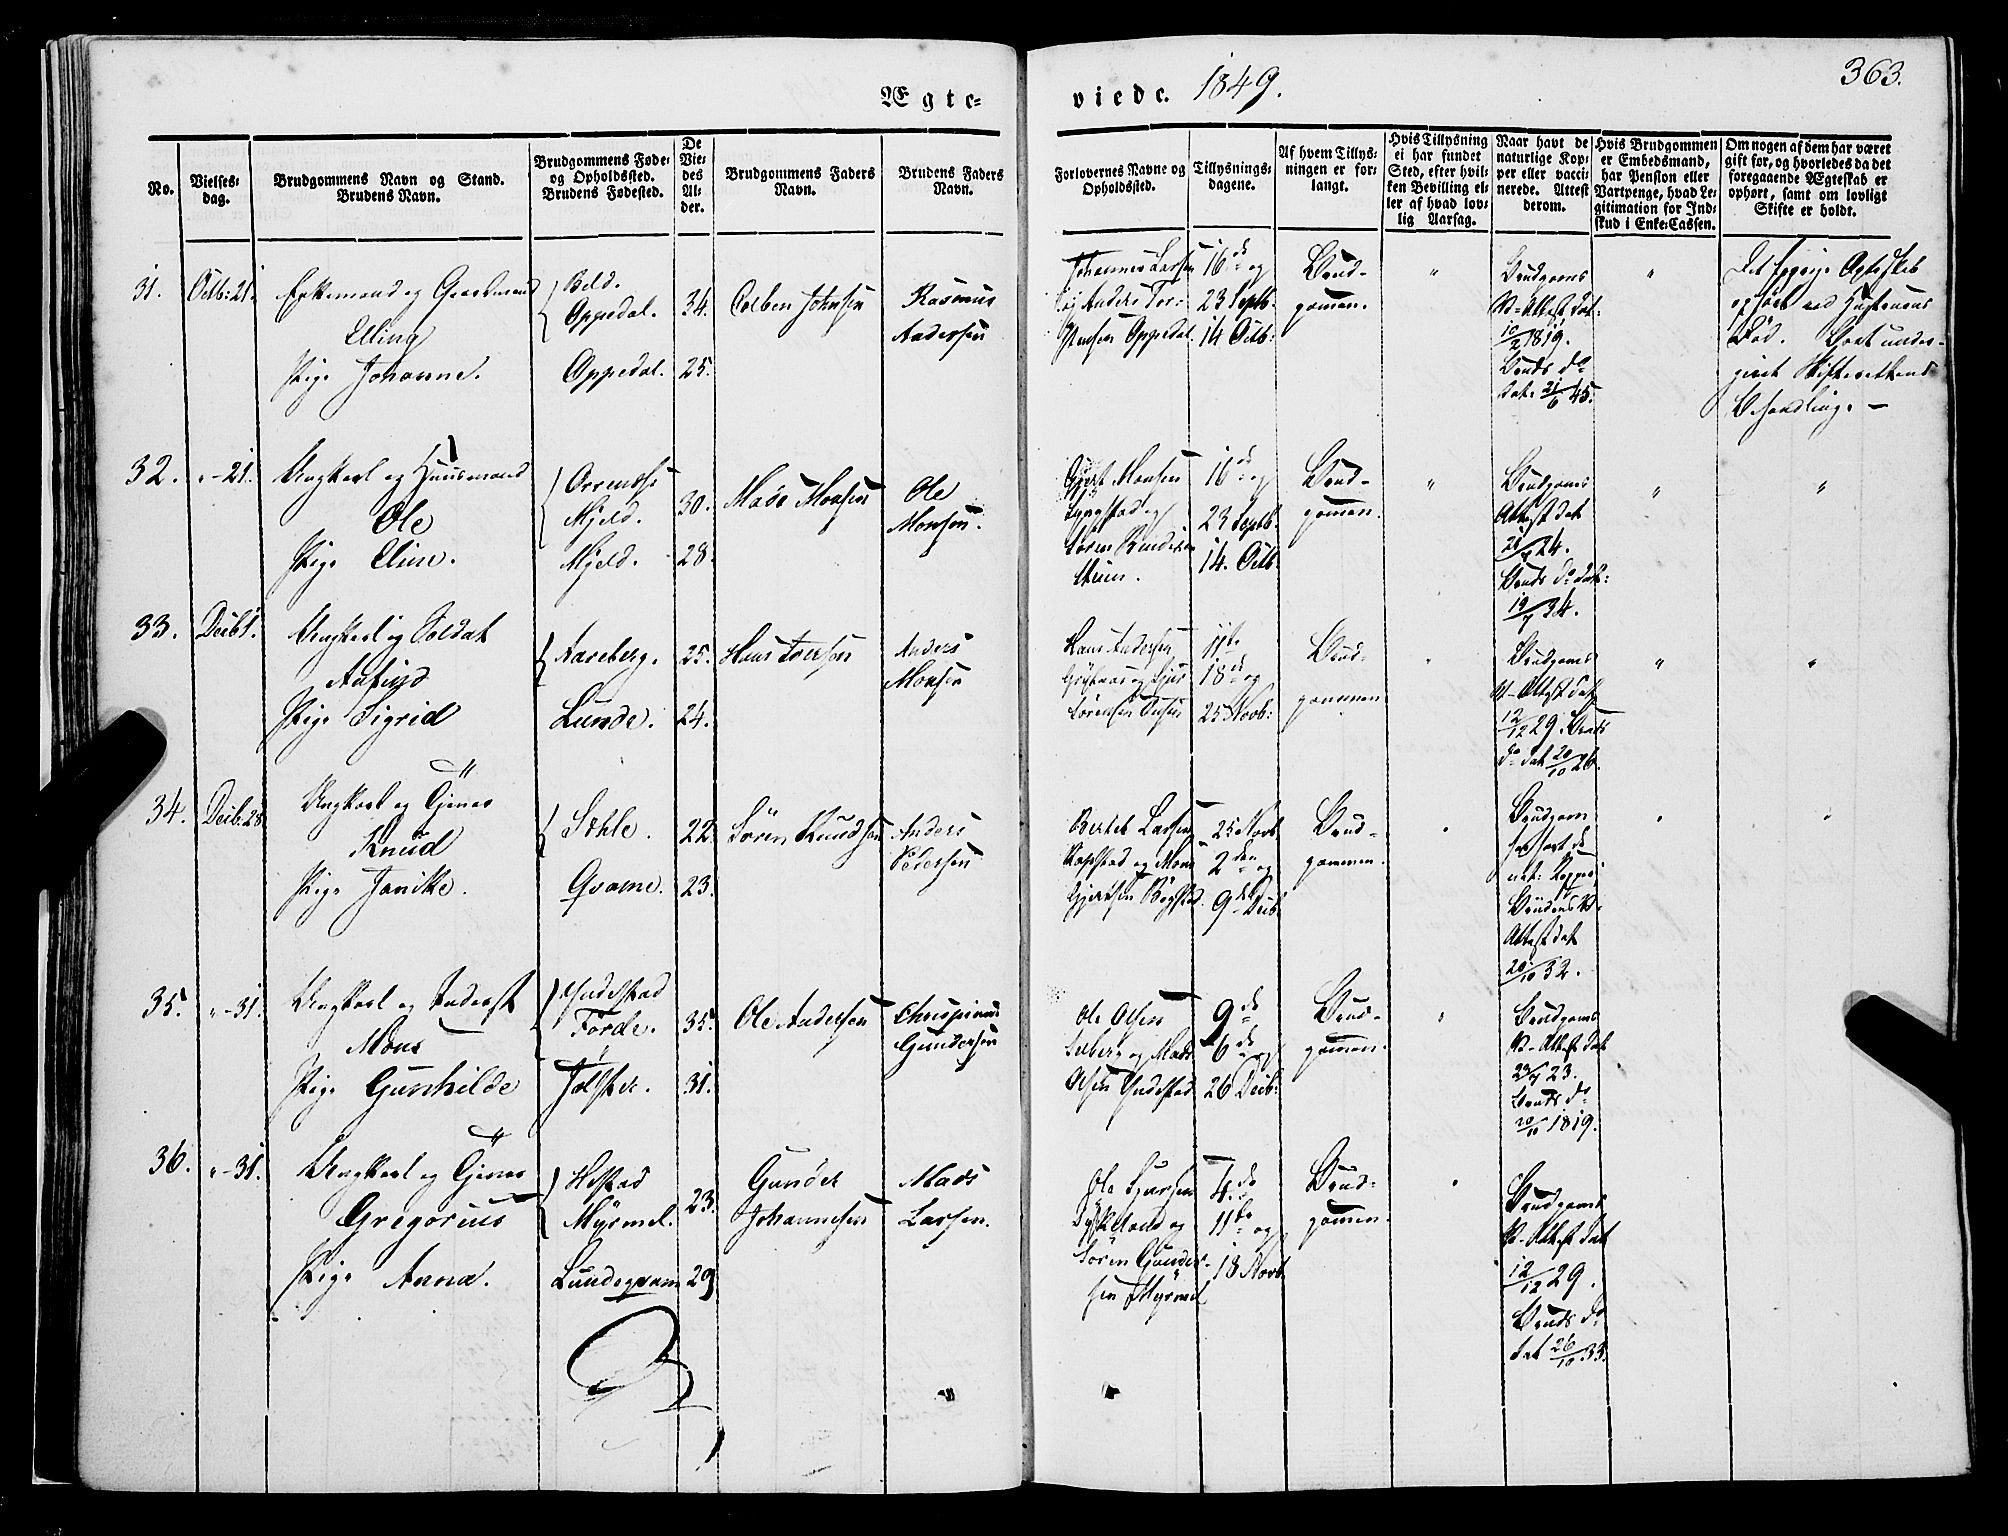 Ægte-
viede. 1849.
363.
No.
Vielses-
dag.
Brudgommens Navn og Stand.
Brudens Navn.
Brudgommens Føde-
og Opholdssted.
Brudens Fødested.
De
Vie-
des
Al-
der.
Brudgommens Faders
Navn.
Brudens Faders
Navn.
Forlovernes Navne og
Opholdssted.
Tillysnings-
dagene.
Af hvem Tillys-
ningen er for-
langt.
Hvis Tillysning
ei har fundet
Sted, efter hvil-
ken Bevilling el-
ler af hvad lov-
lig Aarsag.
Naar havt de
naturlige Kop-
per eller vacci-
nerede. Attest
derom.
Hvis Brudgommen
er Embedsmand,
har Pension eller
Vartpenge, hvad Le-
gitimation for Ind-
skud i Enke-Cassen.
Om nogen af dem har været
gift før, og hvorledes da det
foregaaende Ægteskab er
ophørt, samt om lovligt
Skifte er holdt.
31.
Octb: 21.
Enkemand og Gaardmand
Elling
Pige Johanne.
Oppedal.
Oppedal.
34.
25.
Colben Johnsen
Rasmus
Andersen
Johannes Larsen
og Anders Tor-
stensen Oppedal.
16de og
23 Septb.
14 Octb:
Brud-
gomen.
"
Brudgoms
V-Attest dat.
10/2 1819.
Bruds do
dat. 21/6 45.
"
Det forrige Ægteskab
ophört ved Hustruens
Död. Boet under-
givet Skifterettens
Behandling. —
32.
"-21.
Ungkarl og Huusmand
Ole
Pige Eline.
Mjeld.
Mjeld.
30.
28.
Mads Monsen
Ole
Monsen.
Gjert Monsen
og
Sören
16de og
23 Septb.
14. Octb.
Brud-
gomen.
"
Brudgoms
Attest dat
24.
Bruds do dat:
19/7 34.
"
"
33.
Decb 1.
Ungkarl og Soldat
Pige Sigrid
Aareberg.
Lunde.
25.
24.
Hans Iversen
Anders
Monsen
Hans Andersen
og
Sörensen
11te
18de og
25 Novb:
Brud-
gommen
"
Brudgoms
V-Attest dat
12/12 29. Bruds
do dat 20/10 26.
"
"
34.
Decb: 28
Ungkarl og Tjener
Knud
Pige Janike.
Qvame.
22.
23.
Sören Knudsen
Anders
Pedersen
Larsen
og Mons
Gjertsen
25 Novb
2den og
9de Decb
Brud-
gommen.
"
Brudgom
har havt de
nat: Kopper
Brudens V-
Attest dat
20/10 32.
"
"
35.
"-31.
Ungkarl og Inderst
Mons
Pige Gunhilde
Indestad
Förde.
Jölster.
35.
31.
Ole Andersen
Gundersen
Ole Olsen
og Mads
Olsen Indestad
9de
16de og
26 Decb:
Brud-
gomen.
"
Brudgoms
V-Attest dat
23.
Bruds do
1819.
36.
"-31.
Ungkarl og Tjener
Gregorius
Pige Anna.
Hestad
Myrmel.
Lundeqvam
23.
29
Gunder
Johannesen
Mads
Larsen.
Ole
og
Sören Gunder-
sen Myrmel
4.de
11te og
18 Novb.
Brud-
gomen.
"
Brudgoms
V-Attest dat
12/12 29.
Bruds do
dat 26/10 33.